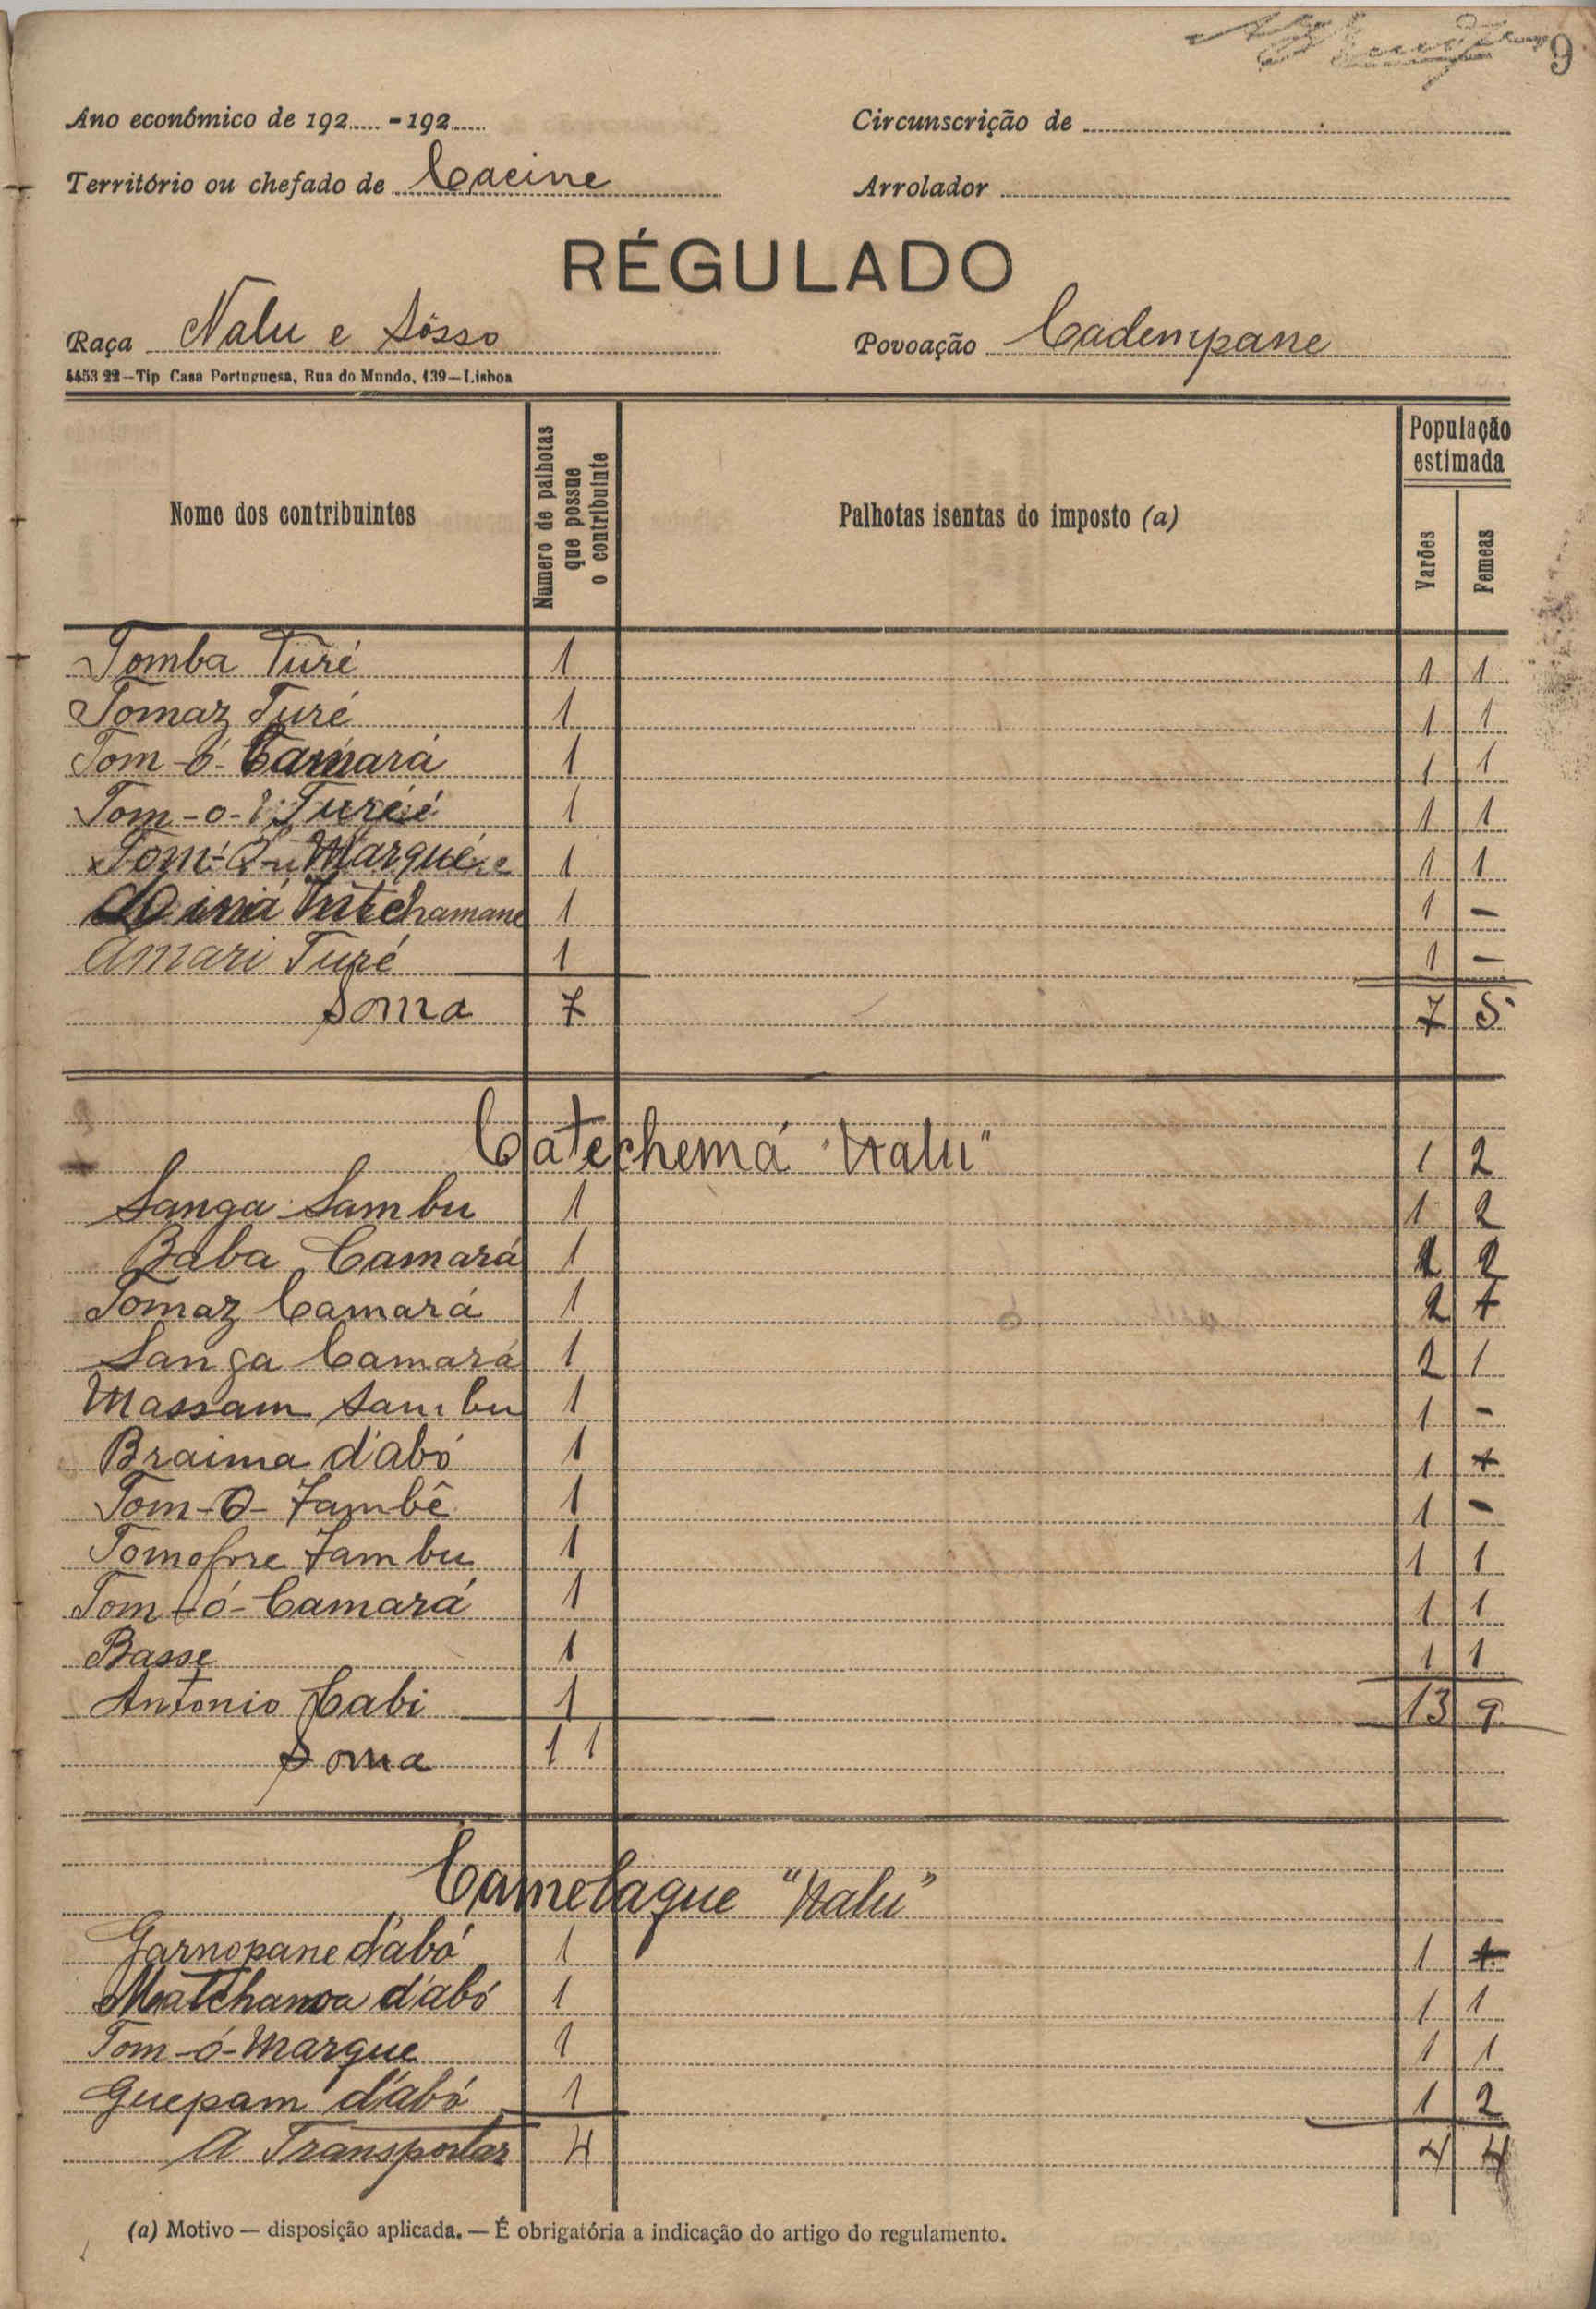 9
Ano económico de 192..... - 192......
Circunscrição de
Território ou chefado de Cacine
Arrolador
RÉGULADO
Raça Nalu e Sôsso
Povoação Cadempane
4453 22—Tip Casa Portuguesa, Rua do Mundo, 139—Lisboa
Nome dos contribuintes
Numero de palhotas que possue o contribuinte
Palhotas isentas do imposto (a)
População estimada
Varões
Femeas
Tomba Turé 1 1 1
Tomaz Turé 1 1 1
Tom-ó-Camará 1 1 1
Tom-o- Turé 1 1 1
Tom-Ó- Marque 1 1 1
1 1 -
Amari Turé 1 1 -
Soma 7 7 5
Catechemá "Nalu" 1 2
Sanga Sambu 1 1 2
Baba Camará 1 2
Tomaz Camará 1 2
Sanga Camará 1 2 1
Massam Sambu 1 1 -
Braima d'abó 1 1
Tom-O- Tambê 1 1 -
Tomofore Tambu 1 1 1
Tom-ó-Camará 1 1 1
Basse 1 1 1
Antonio Cabi 1 13 9
Soma 11
Camelaque "Nalu"
Garnopane d'abó 1 1 1
Matchanoa d'abó 1 1 1
Tom-ó-Marque 1 1 1
Guepam d'abó 1 1 2
A Transportar 4 4 4
(a) Motivo — disposição aplicada. — É obrigatória a indicação do artigo do regulamento.